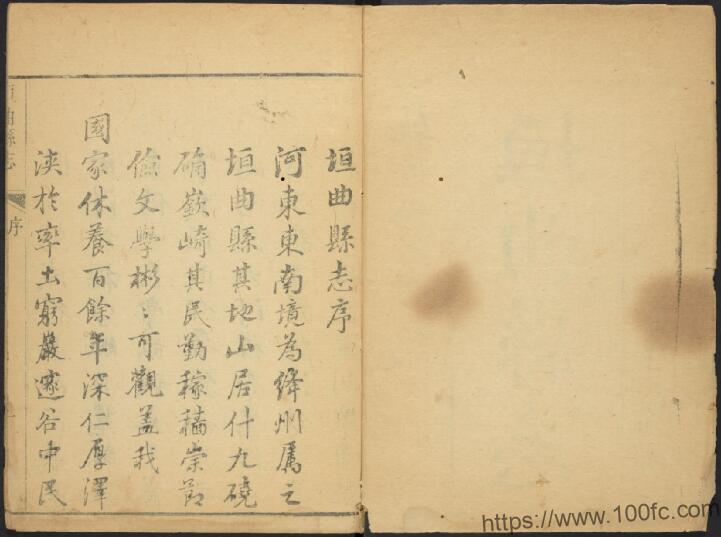 垣曲縣志序
河東東南境為絳州屬之
垣曲縣其地山居什九磽
确嶔崎其民勤稼穡崇節
儉文學彬〻可觀蓋我
國家休養百餘年深仁厚澤
浹於率土窮巖邃谷中民
垣曲縣志
序
https://www.100fc.com